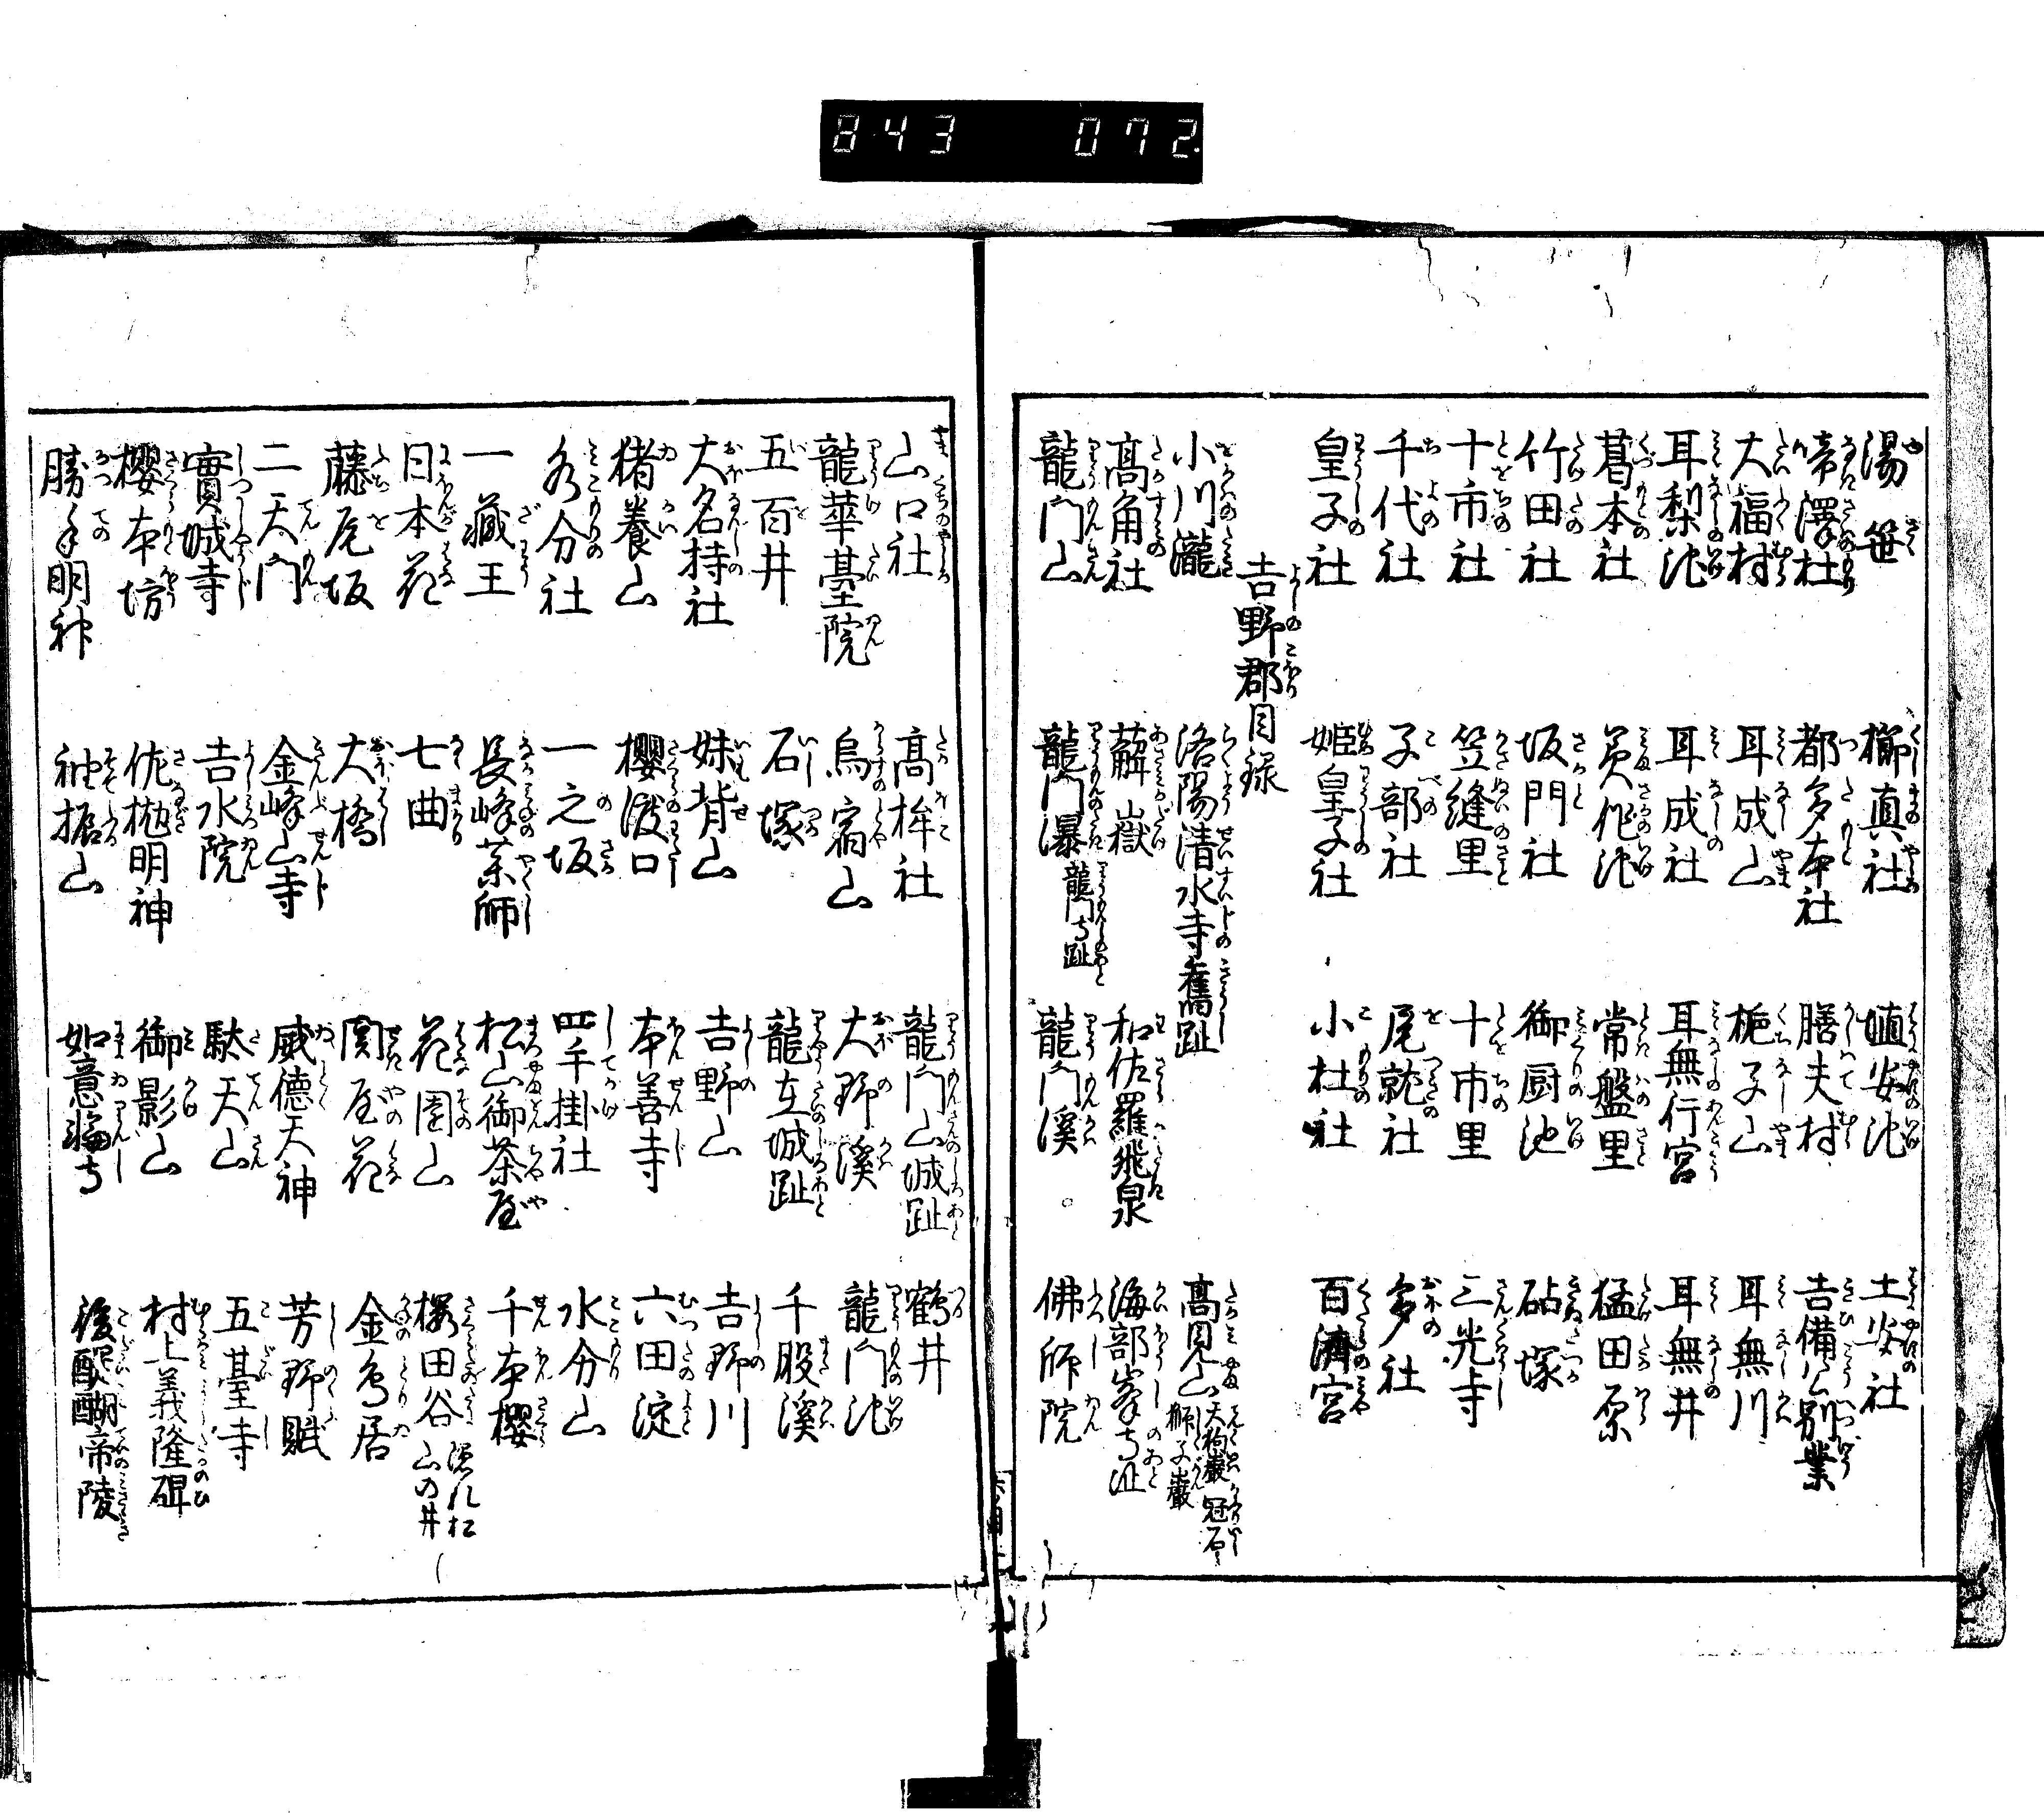 843 072
湯笹 櫛真社 埴安池 土安社
啼澤杜 都多本社 膳夫村 吉備公別業
大福村 耳成山 梔子山 耳無川
耳梨池 耳成社 耳無行宮 耳無井
葛本社 常盤里 猛田原
竹田社 坂門社 御厨池 砧塚
十市社 笠縫里 十市里 三光寺
千代社 子部社 尾就社 多社
皇子社 姫皇子社 小杜社 百濟宮
吉野郡目録
小川瀧 洛陽清水寺舊趾 髙見山 天狗巖 冠石 獅子巖
髙角社 薢嶽 和佐羅飛泉 海部峯寺趾
龍門山 龍門瀑 龍門寺趾 龍門溪 佛師院
山口社 髙桙社 龍門山城趾 鶴井
龍華臺院 烏宿山 大野溪 龍門池
五百井 石塚 龍在城趾 千股溪
大名持社 妹背山 吉野山 吉野川
猪養山 櫻渡口 本善寺 六田淀
水分社 一之坂 四手掛社 水分山
一藏王 長峰茶師 松山御茶屋 千本櫻
日本花 七曲 花園山 櫻田谷 隠れ松 山の井
藤尾坂 大橋 関屋花 金鳥居
二天門 金峰山寺 威德天神 芳野賦
實城寺 吉水院 駄天山 五臺寺
櫻本坊 佐抛明神 御影山 村上義隆碑
勝手明神 袖振山 如意輪寺 後醍醐帝陵